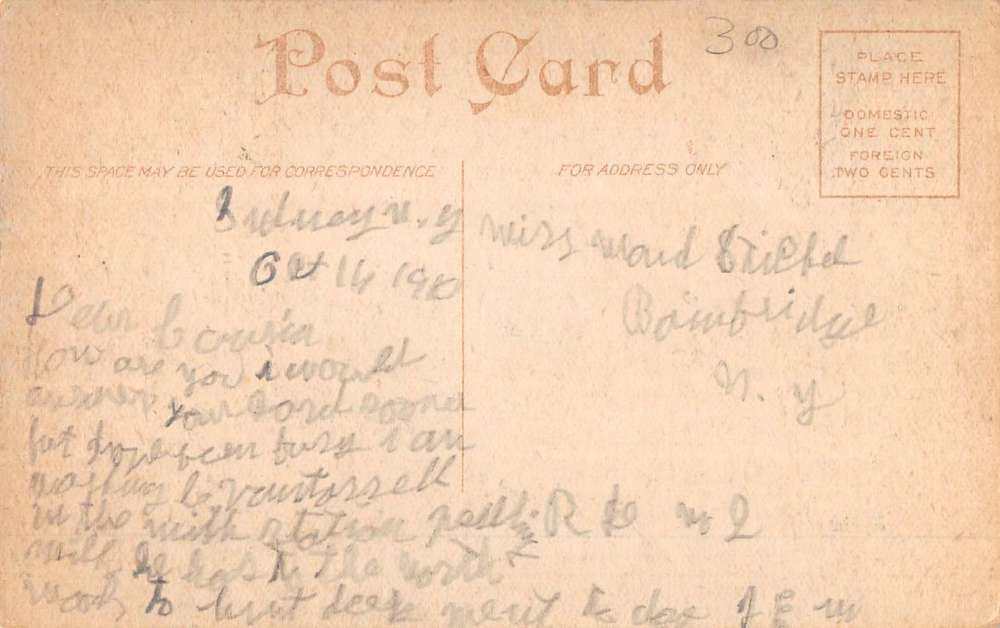 Post Card
300
PLACE
STAMP HERE
DOMESTIC
ONE CENT
FOREIGN
TWO CENTS
THIS SPACE MAY BE USED FOR CORRESPONDENCE
FOR ADDRESS ONLY
Sydney n. y
Oct 14 1910
Dear Cousin
How are you i would
answer your card sooner
but have been busy i am
in the milk station
will he has to the north
woods to hunt deer next
miss maud
Bainbridge
n. y